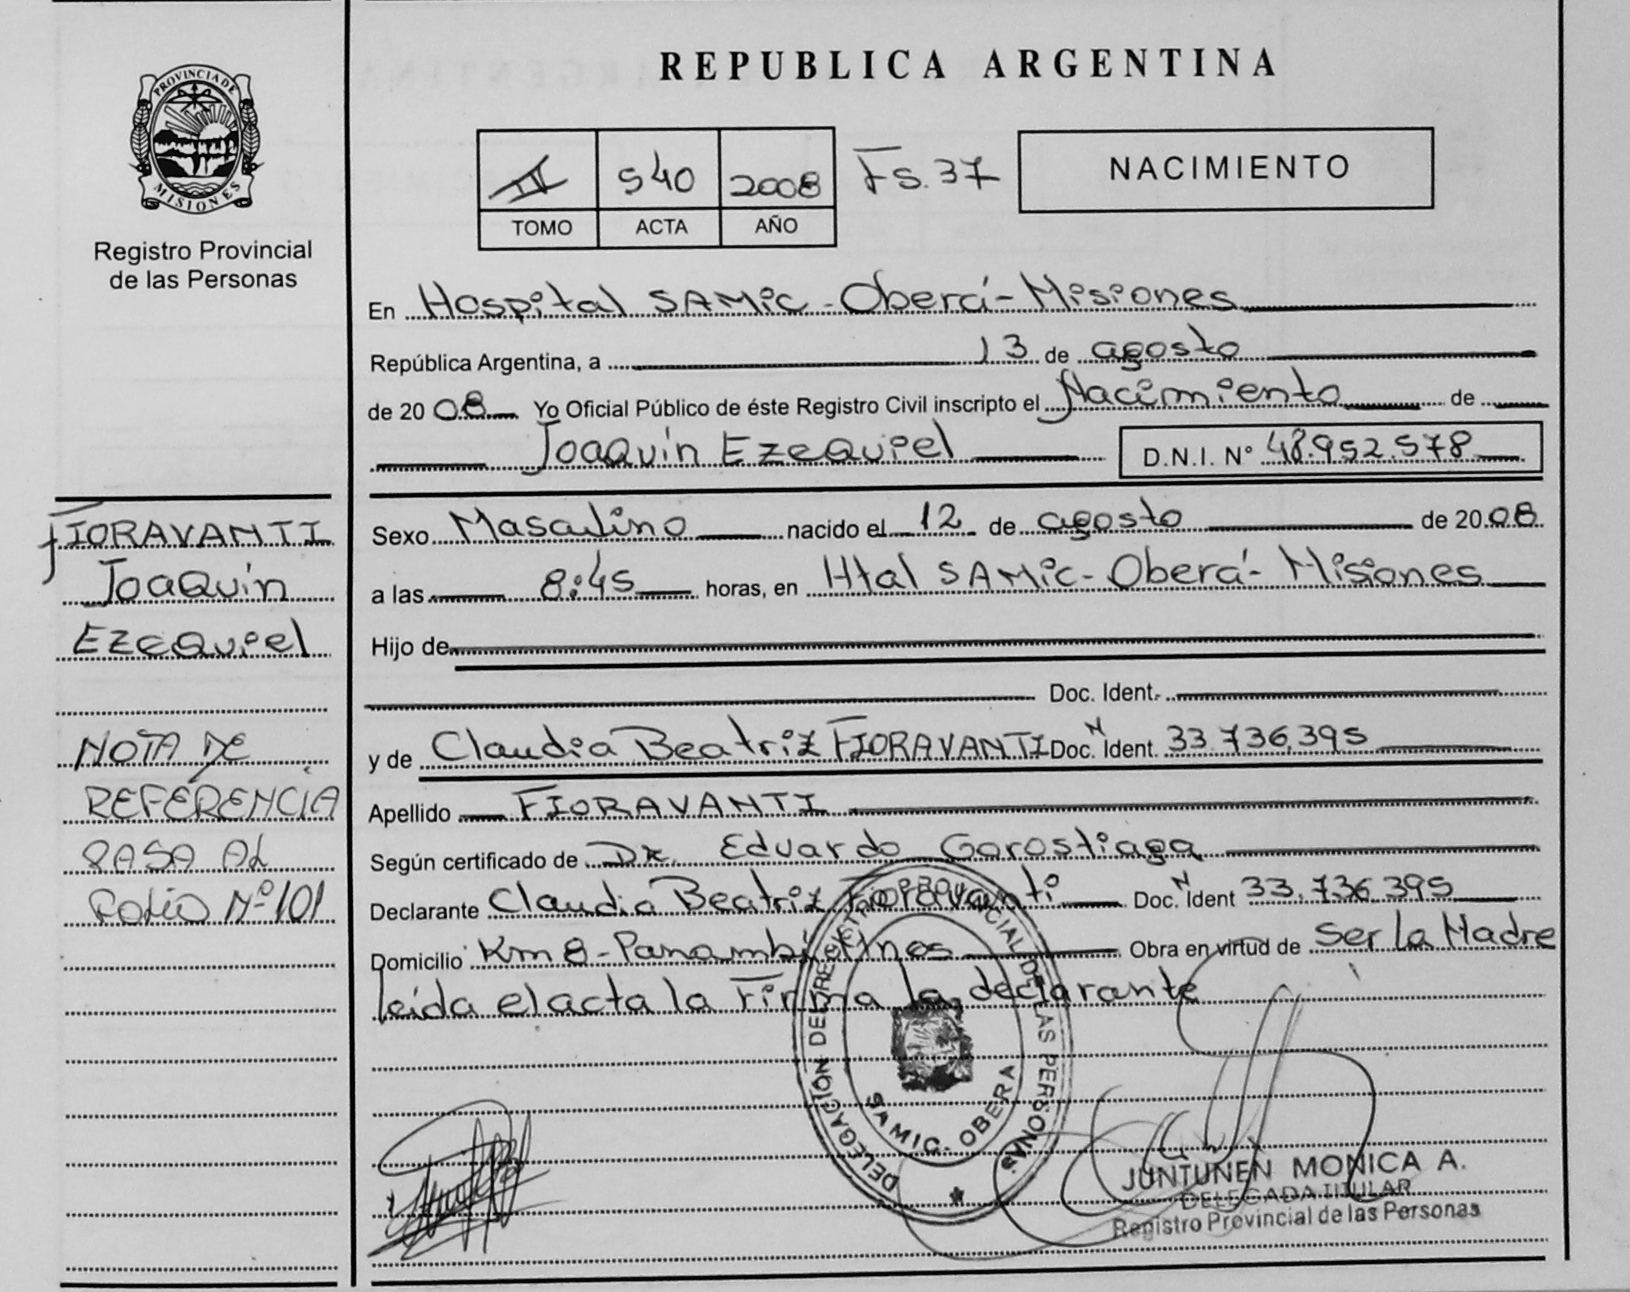 PROVINCIA DE
MISIONES
Registro Provincial
de las Personas
REPUBLICA ARGENTINA
540 2008 Fs. 37
TOMO ACTA AÑO
NACIMIENTO
En Hospital SAMic - Oberá - Misiones
República Argentina, a 13 de agosto
de 2008 Yo Oficial Público de éste Registro Civil inscripto el Nacimiento de
Joaquín Ezequiel D.N.I. N° 48.952.578
FIORAVANTI
Joaquín
Ezequiel
Sexo Masculino nacido el 12 de agosto de 2008
a las 8:45 horas, en Htal SAMic - Oberá - Misiones
Hijo de
Doc. Ident.
y de Claudia Beatriz FIORAVANTI Doc. N Ident. 33.736.395
NOTA DE
REFERENCIA
PASA AL
FOLIO Nº 101
Apellido FIORAVANTI
Según certificado de Dr. Eduardo Gorostiaga
Declarante Claudia Beatriz Fioravanti Doc. N Ident 33.736.395
Domicilio Km 8 - Panambí Mnes Obra en virtud de Ser la Madre
leida el acta la Firma la declarante
DELEGACIÓN DEL REGISTRO PROVINCIAL DE LAS PERSONAS
SAMIC. OBERA
JUNTUNEN MONICA A.
DELEGADA TITULAR
Registro Provincial de las Personas